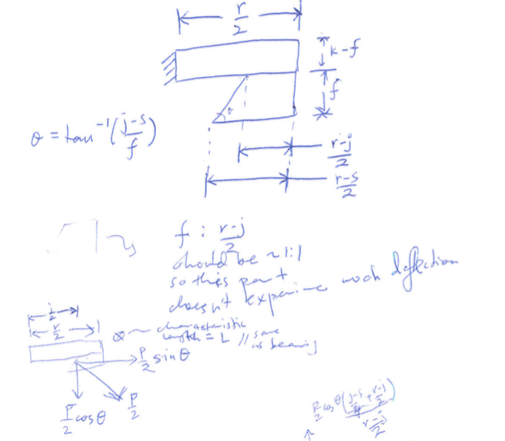 r/2
k-f
f
θ = tan⁻¹(j-s/f)
r-j/2
r-s/2
f : r-j/2
should be ~1:1
so this part
doesn't experience much deflection
j/2
r/2
characteristic
length = L // same
as bearing
P/2 sinθ
P/2 cosθ
P/2
P/2 cosθ
r-j/2